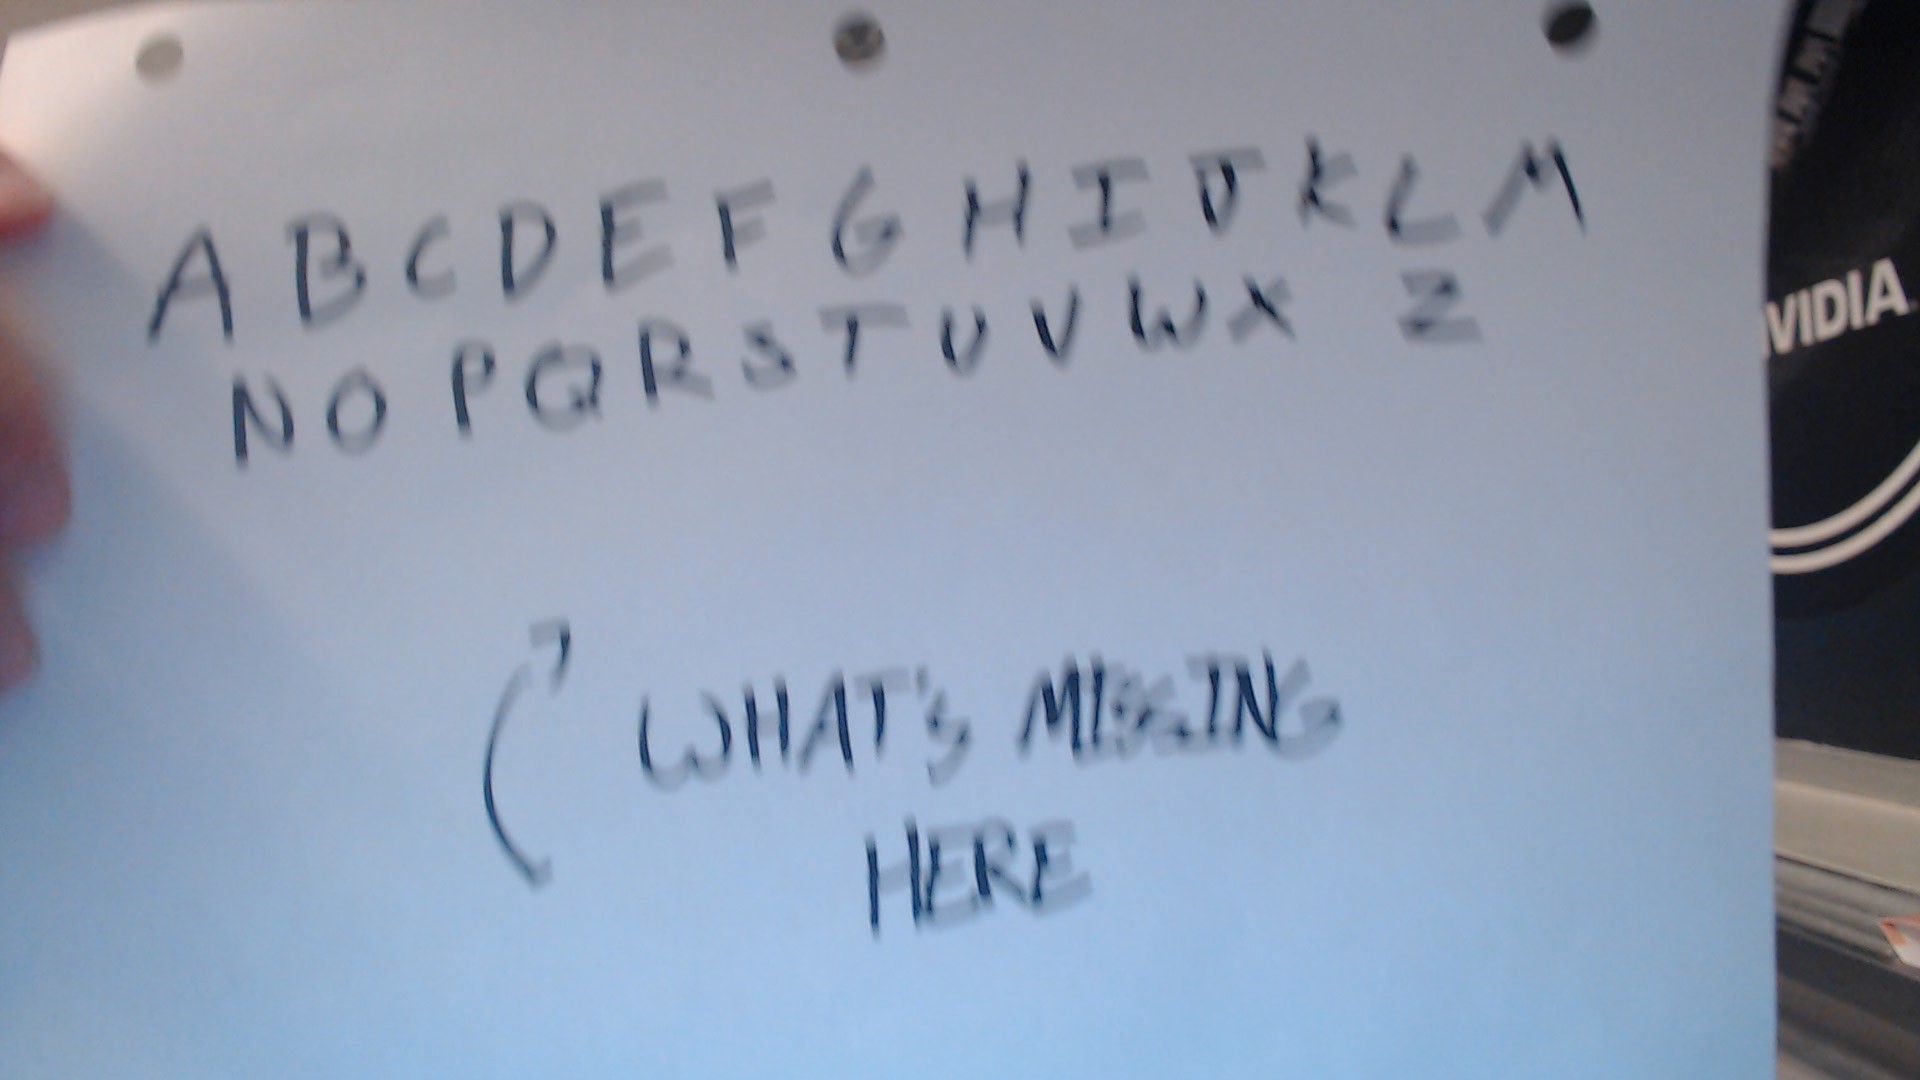 A B C D E F G H I J K L M
N O P Q R S T U V W X Z
WHAT'S MISSING
HERE
VIDIA